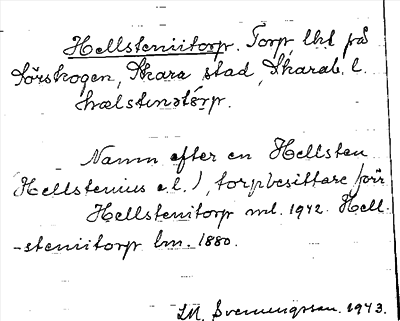 Hellsteniitorp. Torp, lht på
Sörskogen, Skara stad, Skarab. l.
hælstenatórp.
Namn efter en Hellsten
Hellstenius e.l.), torpbesittare förr
Hellstenitorp ml. 1942. Hell-
-steniitorp lm. 1880.
S.M. Svenningsson. 1943.